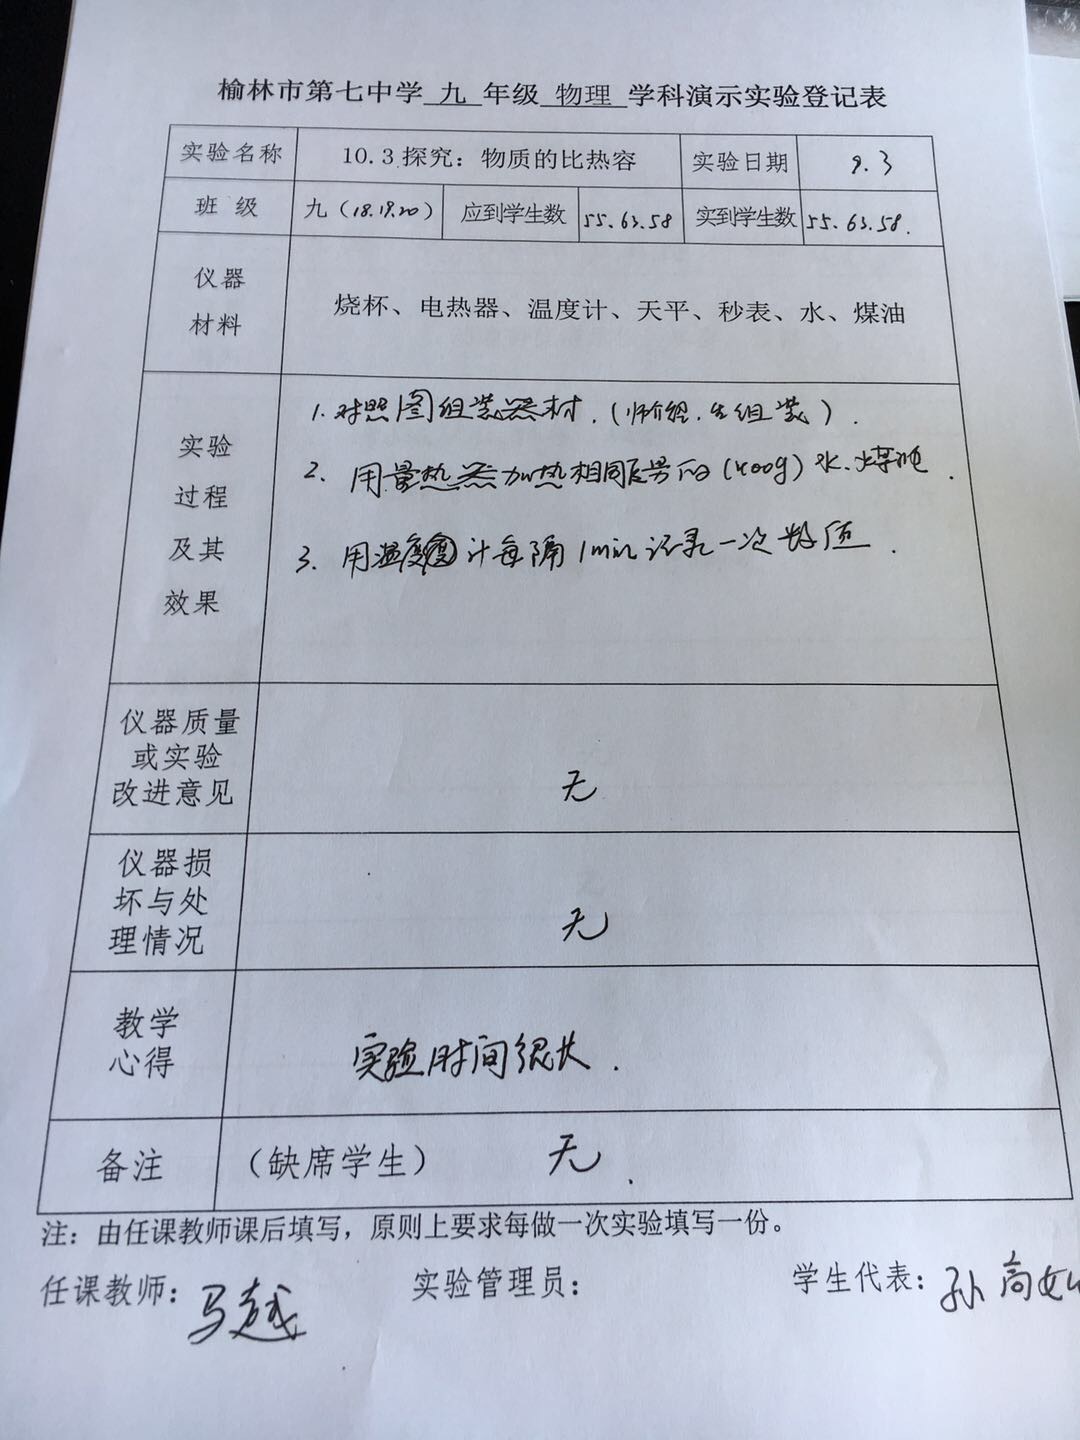 榆林市第七中学 九 年级 物理 学科演示实验登记表
实验名称 10.3探究：物质的比热容 实验日期 9.3
班 级 九（18.19.20） 应到学生数 55.63.58 实到学生数 55.63.58.
仪器
材料
烧杯、电热器、温度计、天平、秒表、水、煤油
实验
过程
及其
效果
1.对照图组装器材.（师介绍.生组装）.
2. 用量热器加热相同质量的（400g）水.煤油.
3. 用温度计每隔1min记录一次数值.
仪器质量
或实验
改进意见
无
仪器损
坏与处
理情况
无
教学
心得
实验时间很长.
备注 （缺席学生） 无.
注：由任课教师课后填写，原则上要求每做一次实验填写一份。
任课教师：马越 实验管理员： 学生代表：孙高